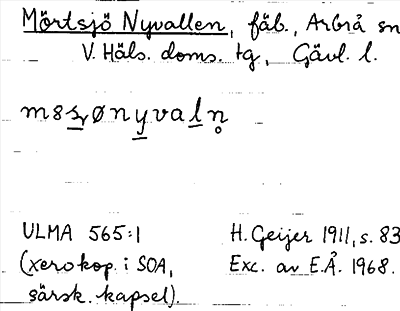 Mörtsjö Nyvallen, fäb., Arbrå sn
V. Häls. doms. tg, Gävl. l.
m8s̲røny̲val̲n̥
ULMA 565:1
(xerokop. i SOA,
särsk. kapsel).
H. Geijer 1911, s. 83
Exc. av E.Å. 1968.